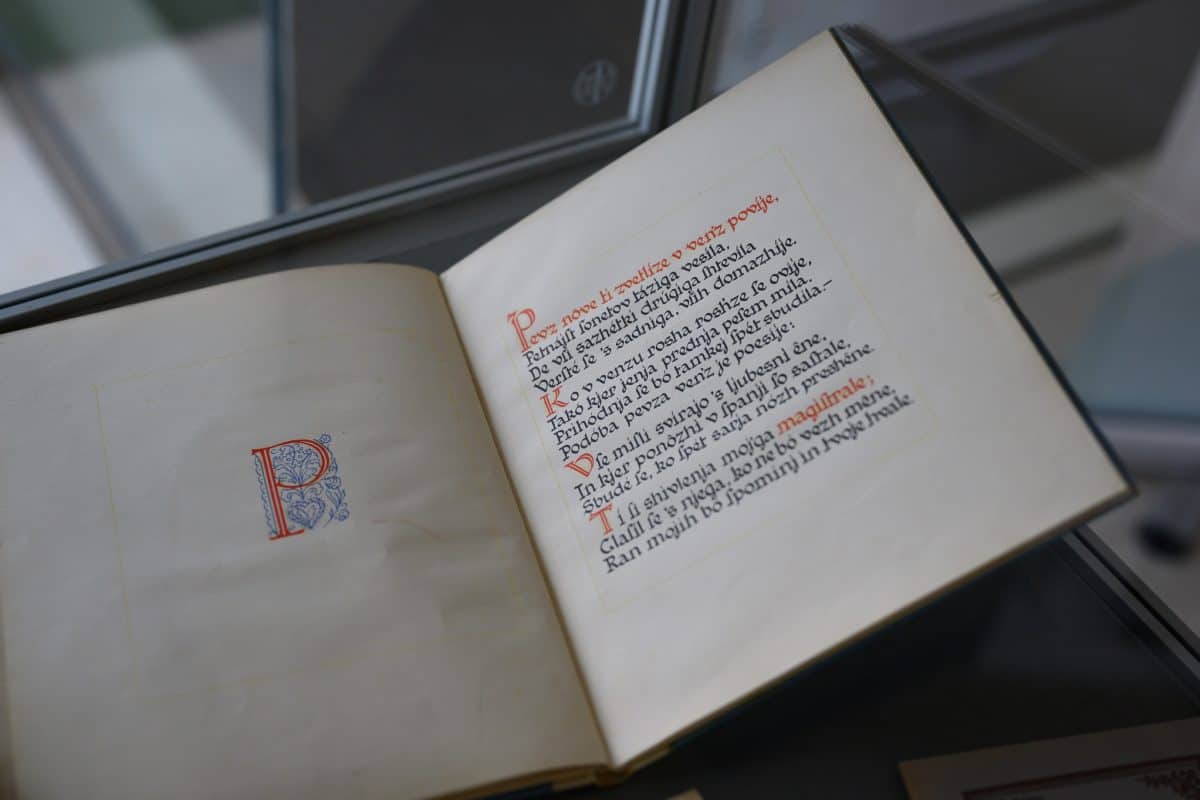 P
Pev'z nove ti zvetlize v ven'z povije,
Petnájſt ſonetov táziga veſila,
De vſi sazhétki drúgiga ſhtevila
Verſté ſe 's sadniga, vſih domazhije.
Ko v venzu rosha roshze ſe ovije,
Takó kjer jenja prednja peſem mila,
Prihódnja ſe bó tamkej ſpét sbudila.–
Podóba pevza ven'z je poesije:
Vſe miſli svirajo 's ljubesni éne,
In kjer ponózhi v ſpanji ſo saſtale,
Sbudé ſe, ko ſpet sarja nózh preshéne.
Ti ſi shivlenja mojga magiſtrale;
Glaſil ſe 's njega, ko ne bó vezh méne,
Ran mojih bó ſpominj in tvoje hvale.